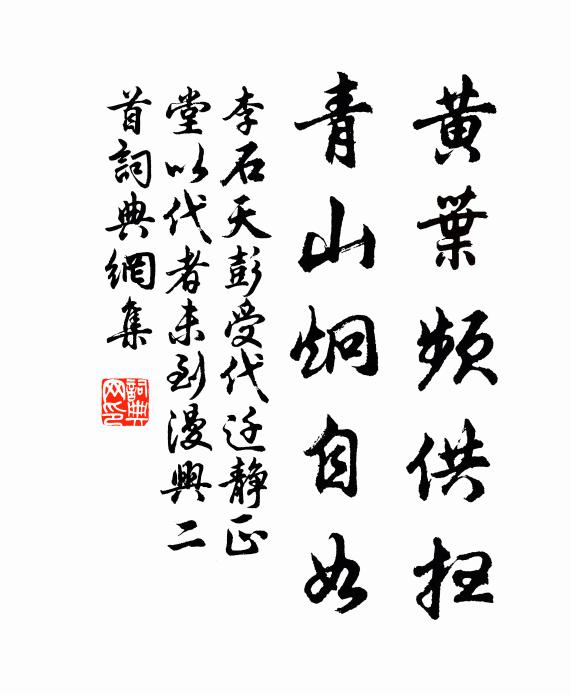 黄葉頻供
青山炯自如
李石天彭受代迁静正
堂以代者未到漫興二
首詞典網集
詞典
网印